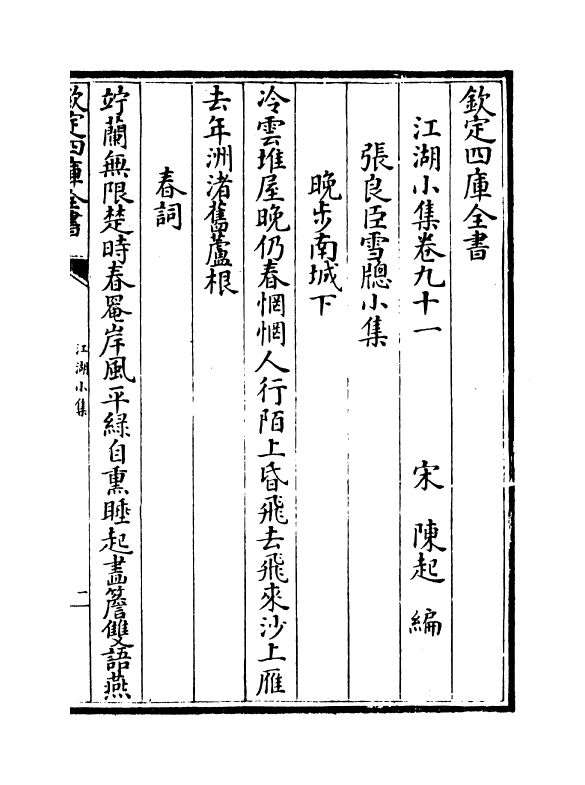 欽定四庫全書
江湖小集卷九十一　宋　陳起　編
張良臣雪牕小集
晚步南城下
冷雲堆屋晚仍春惘惘人行陌上昏飛去飛來沙上雁
去年洲渚舊蘆根
春詞
竚蘭無限楚時春罨岸風平緑自熏睡起畫簷雙語燕
欽定四庫全書
江湖小集